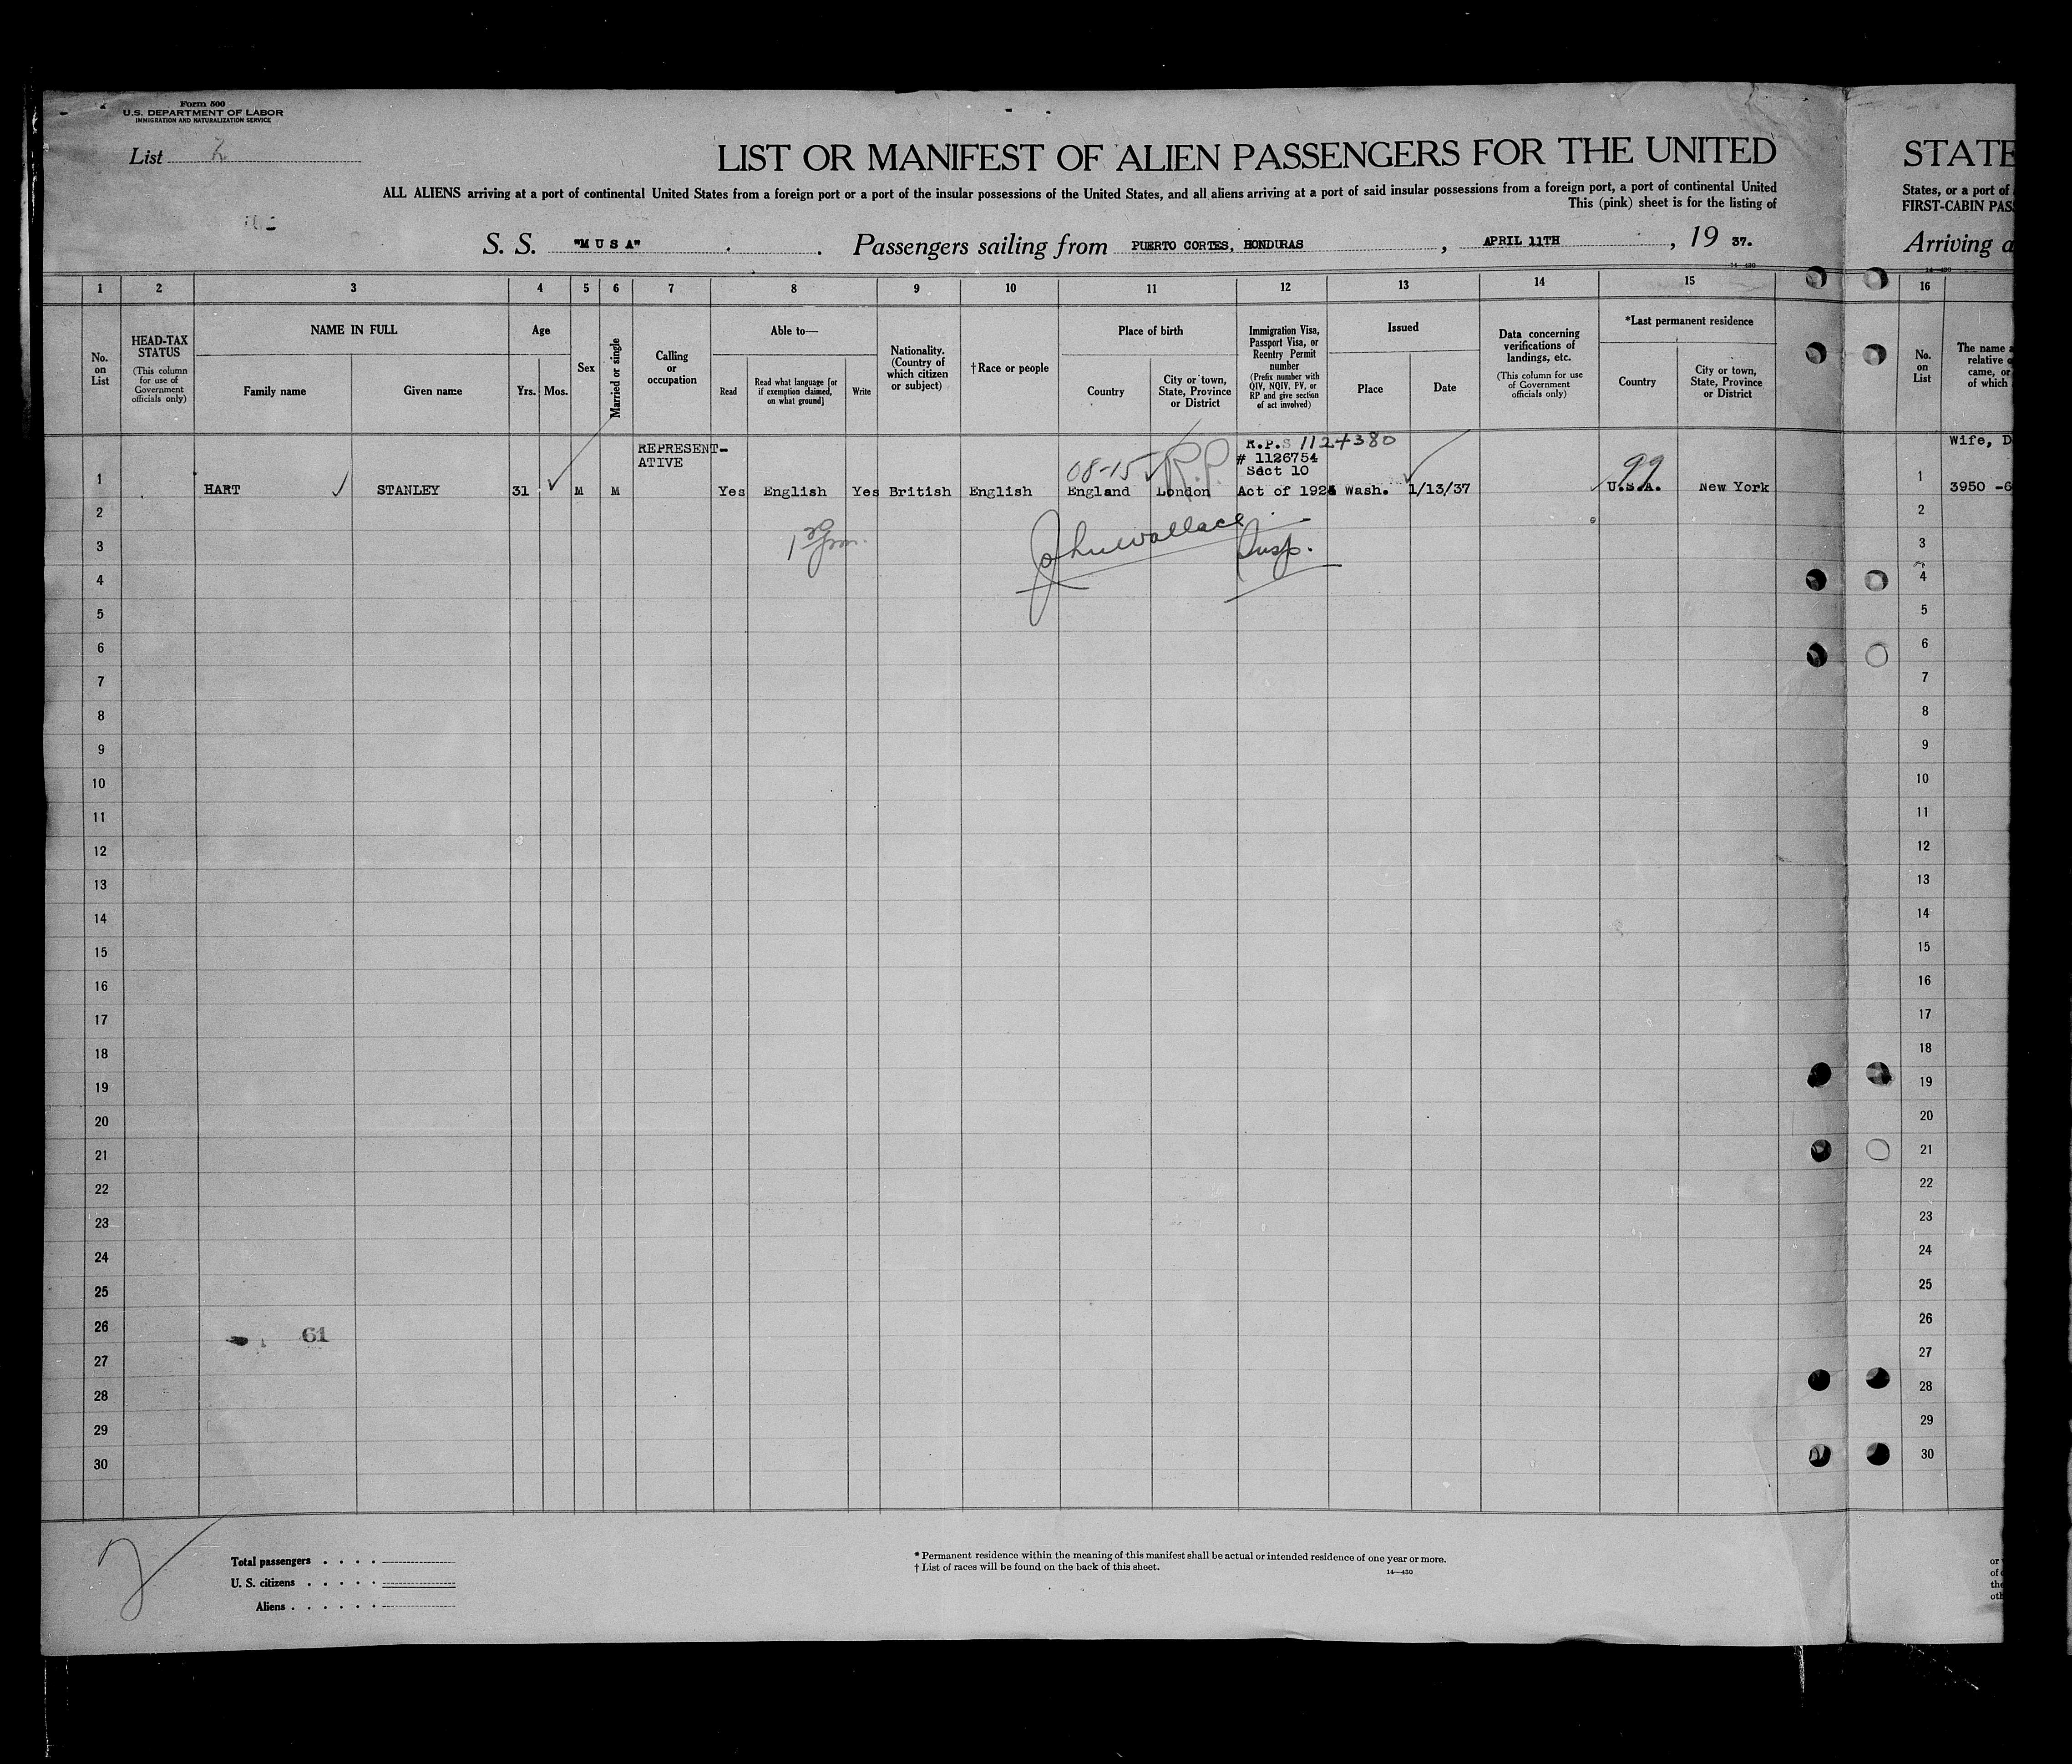 Form 500
U.S. DEPARTMENT OF LABOR
IMMIGRATION AND NATURALIZATION SERVICE
List 2
LIST OR MANIFEST OF ALIEN PASSENGERS FOR THE UNITED
STATE
ALL ALIENS arriving at a port of continental United States from a foreign port or a port of the insular possessions of the United States, and all aliens arriving at a port of said insular possessions from a foreign port, a port of continental United
States, or a port of
This (pink) sheet is for the listing of
FIRST-CABIN PAS
S. S. "M U S A" . Passengers sailing from PUERTO CORTES, HONDURAS , APRIL 11TH , 19 37.
Arriving a
14—430
14—430
1 2 3 4 5 6 7 8 9 10 11 12 13 14 15 16
No. on List
HEAD-TAX STATUS
(This column for use of Government officials only)
NAME IN FULL
Family name
Given name
Age
Yrs. Mos.
Sex
Married or single
Calling or occupation
Able to—
Read
Read what language [or if exemption claimed, on what ground]
Write
Nationality. (Country of which citizen or subject)
† Race or people
Place of birth
Country
City or town, State, Province or District
Immigration Visa, Passport Visa, or Reentry Permit number
(Prefix number with QIV, NQIV, PV, or RP and give section of act involved)
Issued
Place
Date
Data concerning verifications of landings, etc.
(This column for use of Government officials only)
*Last permanent residence
Country
City or town, State, Province or District
No. on List
The name a
relative o
came, or
of which
REPRESENT-
ATIVE
R.P.S 1124380
# 1126754
Sect 10
08-15 R.P.
99
Wife, D
1 HART STANLEY 31 M M Yes English Yes British English England London Act of 1924 Wash. 1/13/37 U.S.A. New York 1 3950 -6
2 2
John Wallace Insp.
3 3
4 4
5 5
6 6
7 7
8 8
9 9
10 10
11 11
12 12
13 13
14 14
15 15
16 16
17 17
18 18
19 19
20 20
21 21
22 22
23 23
24 24
25 25
26 26
61
27 27
28 28
29 29
30 30
2
Total passengers . . . .
U. S. citizens . . . . .
Aliens . . . . . .
* Permanent residence within the meaning of this manifest shall be actual or intended residence of one year or more.
† List of races will be found on the back of this sheet.
14—430
or
of
the
oth